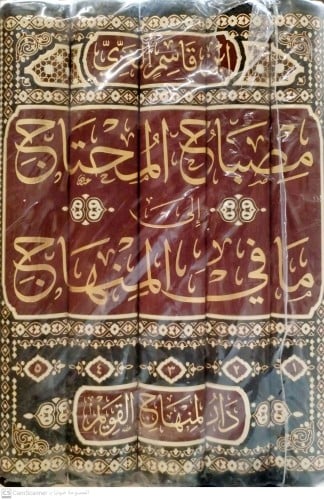 ابن قاسم الغزي
مصباح المحتاج
إلى
ما في المنهاج
١ ٢ ٣ ٤ ٥
دار المنهاج القويم
CS CamScanner